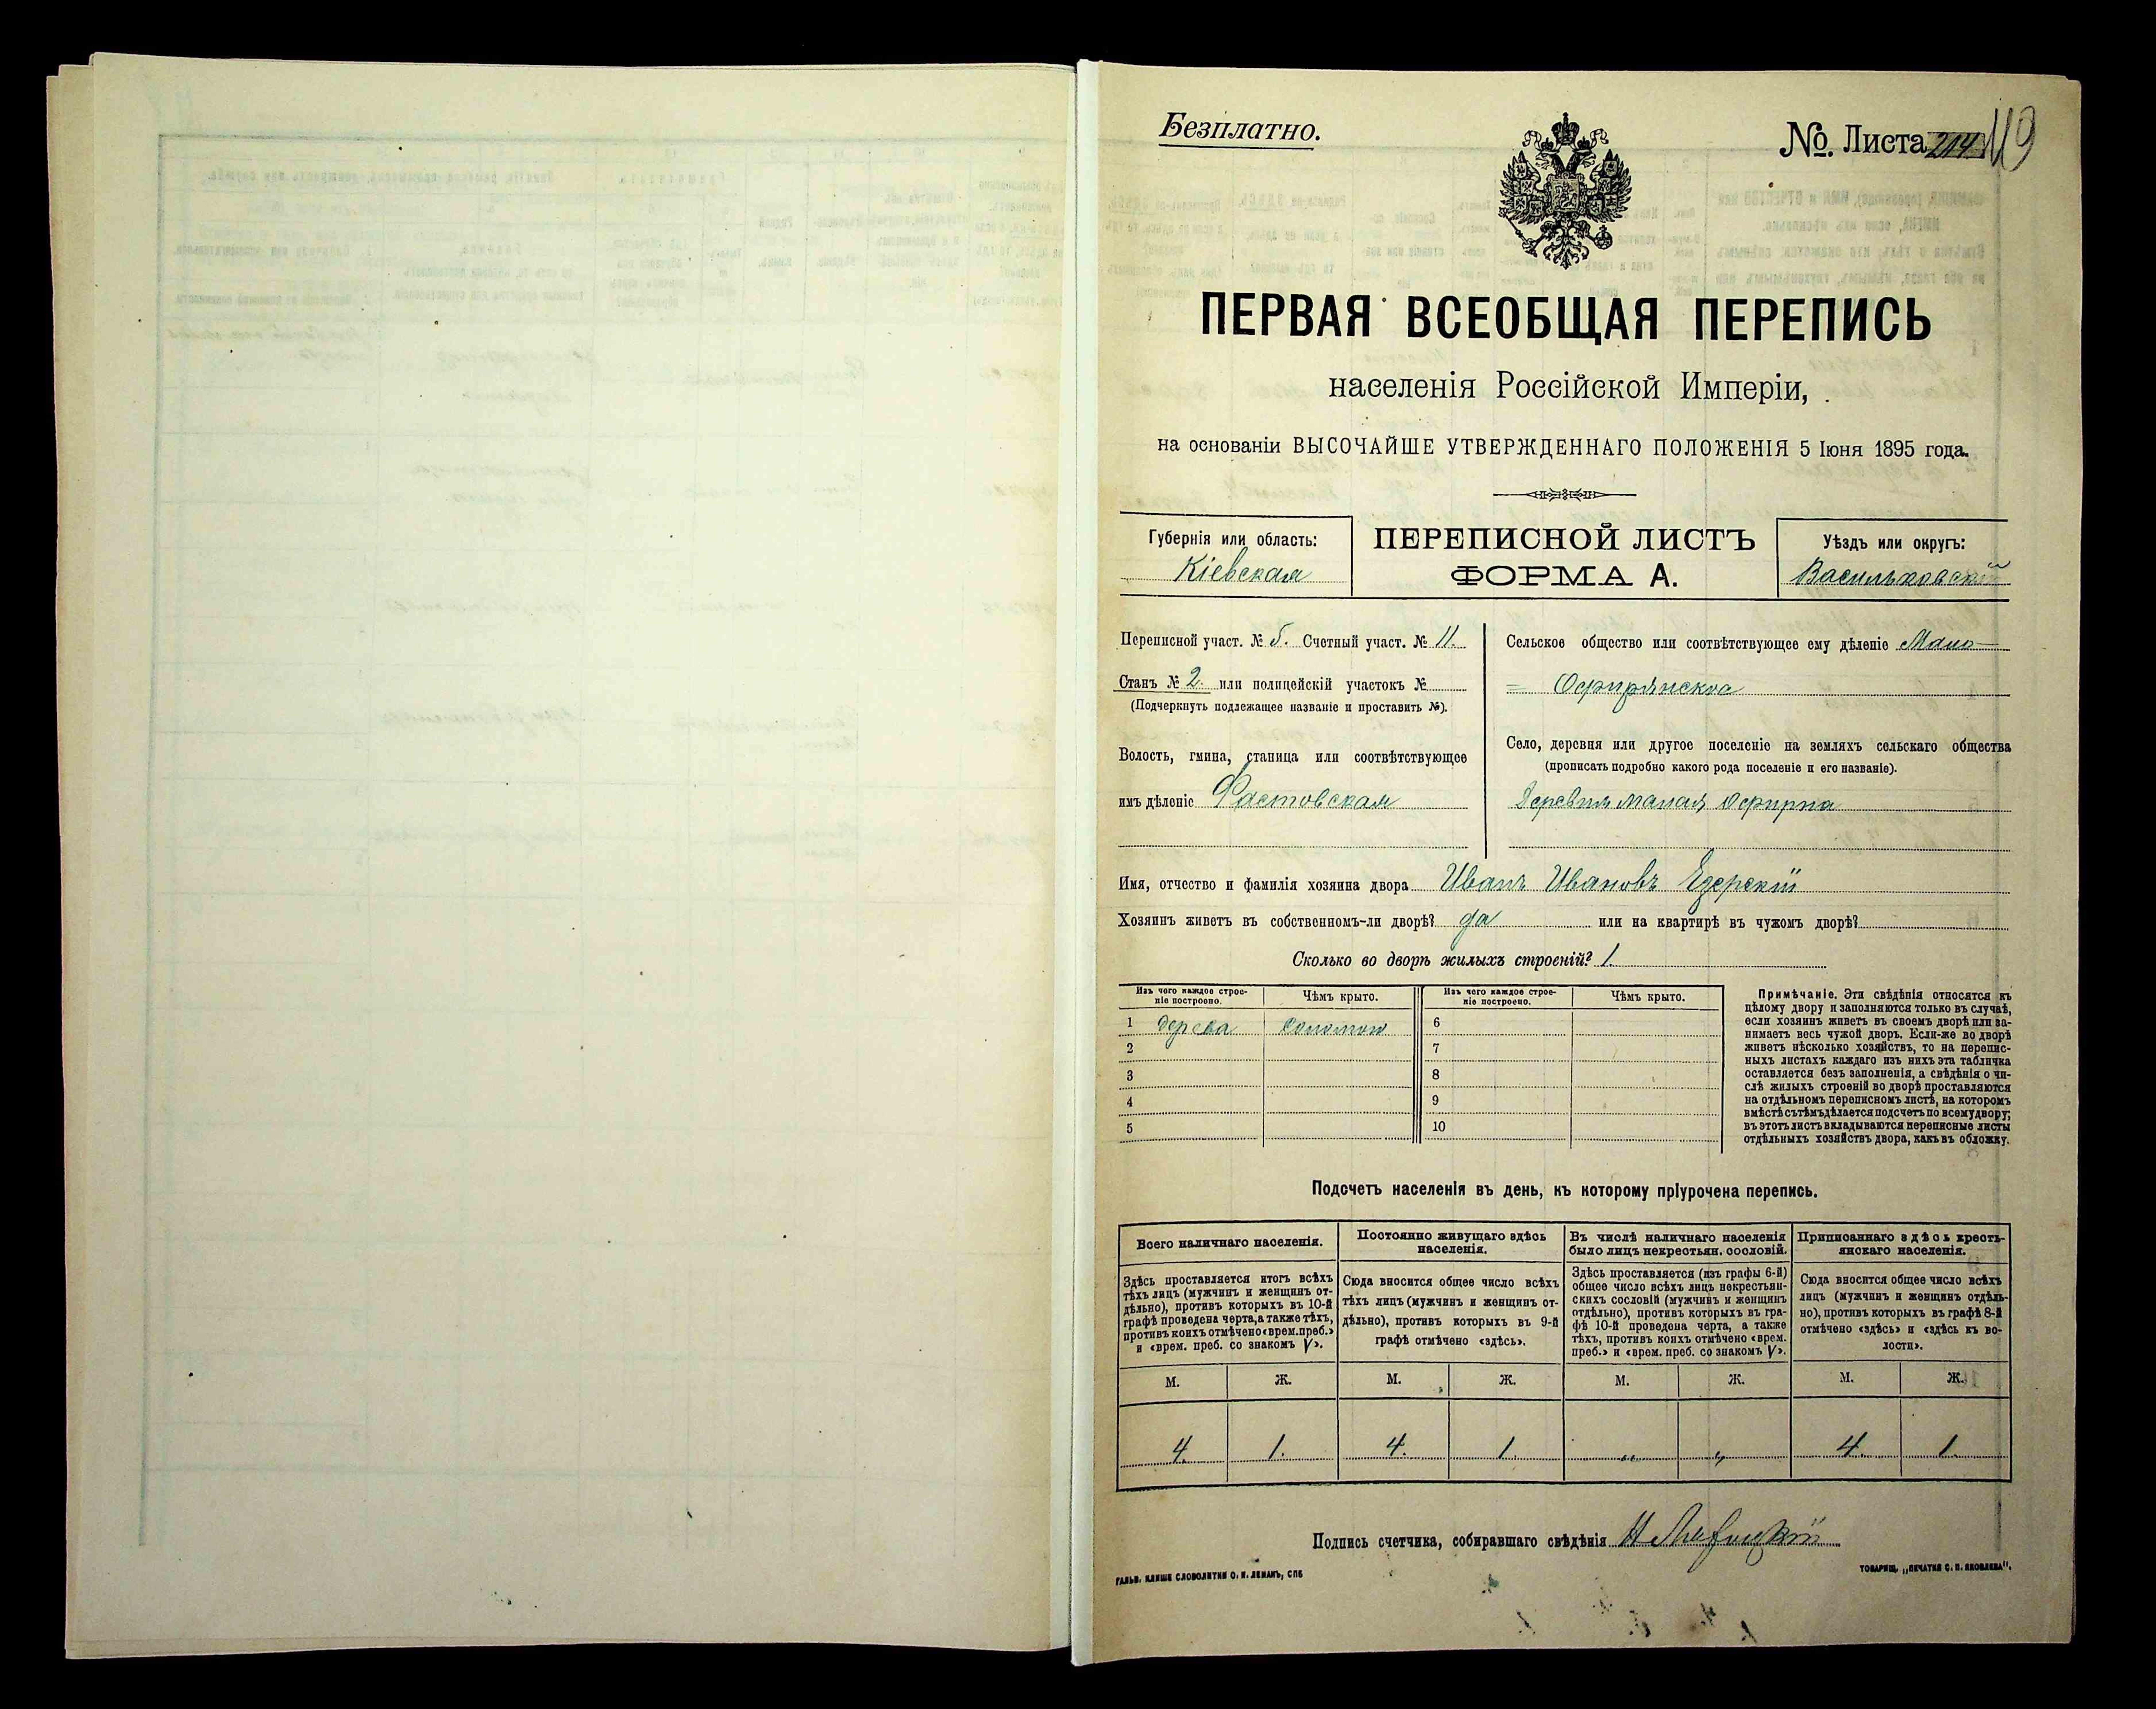 Безплатно.
№. Листа 214 119
ПЕРВАЯ ВСЕОБЩАЯ ПЕРЕПИСЬ
населенія Россійской Имперіи,
на основаніи ВЫСОЧАЙШЕ УТВЕРЖДЕННАГО ПОЛОЖЕНІЯ 5 Іюня 1895 года.
Губернія или область:
Кіевская
ПЕРЕПИСНОЙ ЛИСТЪ
ФОРМА А.
Уѣздъ или округъ:
Васильковскій
Переписной участ. № 5. Счетный участ. № 11.
Станъ № 2. или полицейскій участокъ №
(Подчеркнуть подлежащее названіе и проставить №).
Волость, гмина, станица или соотвѣтствующее
имъ дѣленіе Фастовская
Сельское общество или соотвѣтствующее ему дѣленіе Мало-
= Офирянское
Село, деревня или другое поселеніе на земляхъ сельскаго общества
(прописать подробно какого рода поселеніе и его названіе).
Деревня малая Офирна
Имя, отчество и фамилія хозяина двора Иванъ Ивановъ Езерскій
Хозяинъ живетъ въ собственномъ-ли дворѣ? да или на квартирѣ въ чужомъ дворѣ?
Сколько во дворѣ жилыхъ строеній? 1.
Изъ чего каждое строе-
ніе построено.
Чѣмъ крыто.
Изъ чего каждое строе-
ніе построено.
Чѣмъ крыто.
1 дерева соломою 6
2 7
3 8
4 9
5 10
Примѣчаніе. Эти свѣдѣнія относятся къ
цѣлому двору и заполняются только въ случаѣ,
если хозяинъ живетъ въ своемъ дворѣ или за-
нимаетъ весь чужой дворъ. Если-же во дворѣ
живетъ нѣсколько хозяйствъ, то на перепис-
ныхъ листахъ каждаго изъ нихъ эта табличка
оставляется безъ заполненія, а свѣдѣнія о чи-
слѣ жилыхъ строеній во дворѣ проставляются
на отдѣльномъ переписномъ листѣ, на которомъ
вмѣстѣ съ тѣмъ дѣлается подсчетъ по всему двору;
въ этотъ листъ вкладываются переписные листы
отдѣльныхъ хозяйствъ двора, какъ въ обложку.
Подсчетъ населенія въ день, къ которому пріурочена перепись.
Всего наличнаго населенія.
Здѣсь проставляется итогъ всѣхъ
тѣхъ лицъ (мужчинъ и женщинъ от-
дѣльно), противъ которыхъ въ 10-й
графѣ проведена черта, а также тѣхъ,
противъ коихъ отмѣчено «врем. преб.»
и «врем. преб. со знакомъ V».
Постоянно живущаго здѣсь
населенія.
Сюда вносится общее число всѣхъ
тѣхъ лицъ (мужчинъ и женщинъ от-
дѣльно), противъ которыхъ въ 9-й
графѣ отмѣчено «здѣсь».
Въ числѣ наличнаго населенія
было лицъ некрестьян. сословій.
Здѣсь проставляется (изъ графы 6-й)
общее число всѣхъ лицъ некрестьян-
скихъ сословій (мужчинъ и женщинъ
отдѣльно), противъ которыхъ въ гра-
фѣ 10-й проведена черта, а также
тѣхъ, противъ коихъ отмѣчено «врем.
преб.» и «врем. преб. со знакомъ V».
Приписаннаго здѣсь кресть-
янскаго населенія.
Сюда вносится общее число всѣхъ
лицъ (мужчинъ и женщинъ отдѣль-
но), противъ которыхъ въ графѣ 8-й
отмѣчено «здѣсь» и «здѣсь къ во-
лости».
М. Ж. М. Ж. М. Ж. М. Ж.
4. 1. 4. 1. „ „ 4. 1.
Подпись счетчика, собиравшаго свѣдѣнія
ГАЛЬВ. КЛИШЕ СЛОВОЛИТНИ О. И. ЛЕМАНЪ, СПБ
ТОВАРИЩ. „ПЕЧАТНЯ С. П. ЯКОВЛЕВА“.